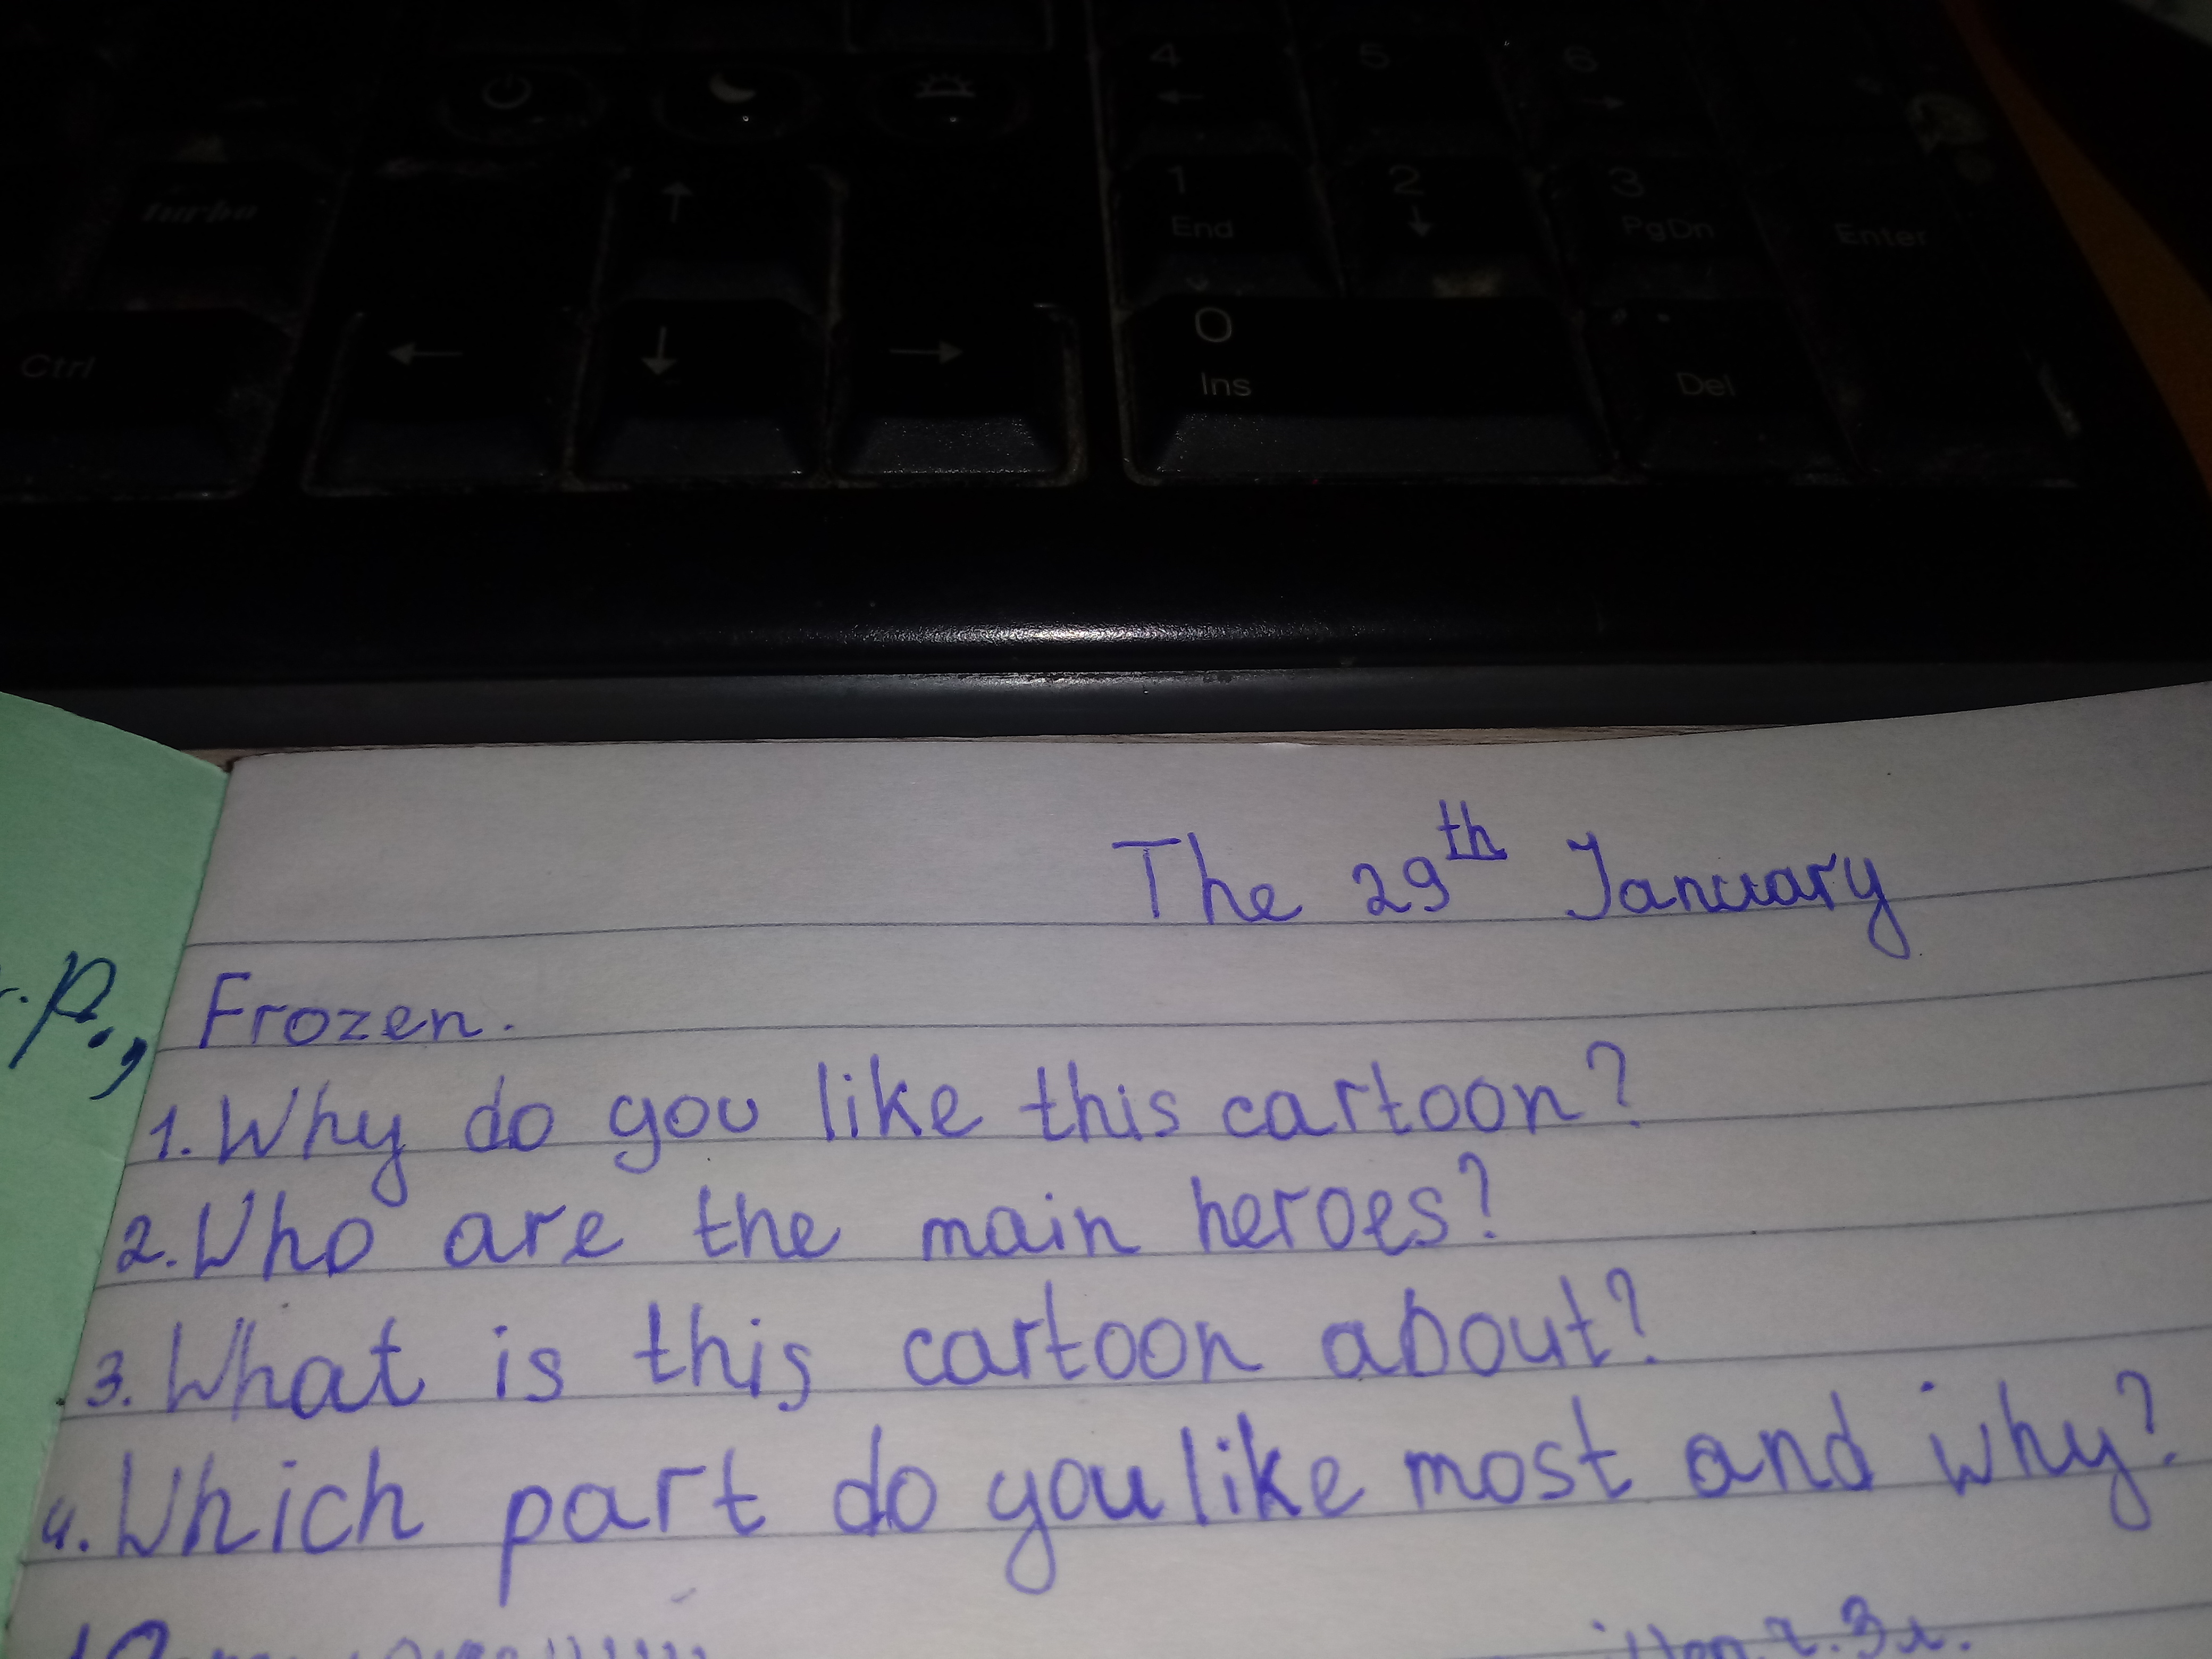 4
5
6
turbo
1
End
2
3
PgDn
Enter
Ctrl
0
Ins
Del
The 29th January
Frozen.
p.,
1. Why do you like this cartoon?
2. Who are the main heroes?
3. What is this cartoon about?
4. Which part do you like most and why?